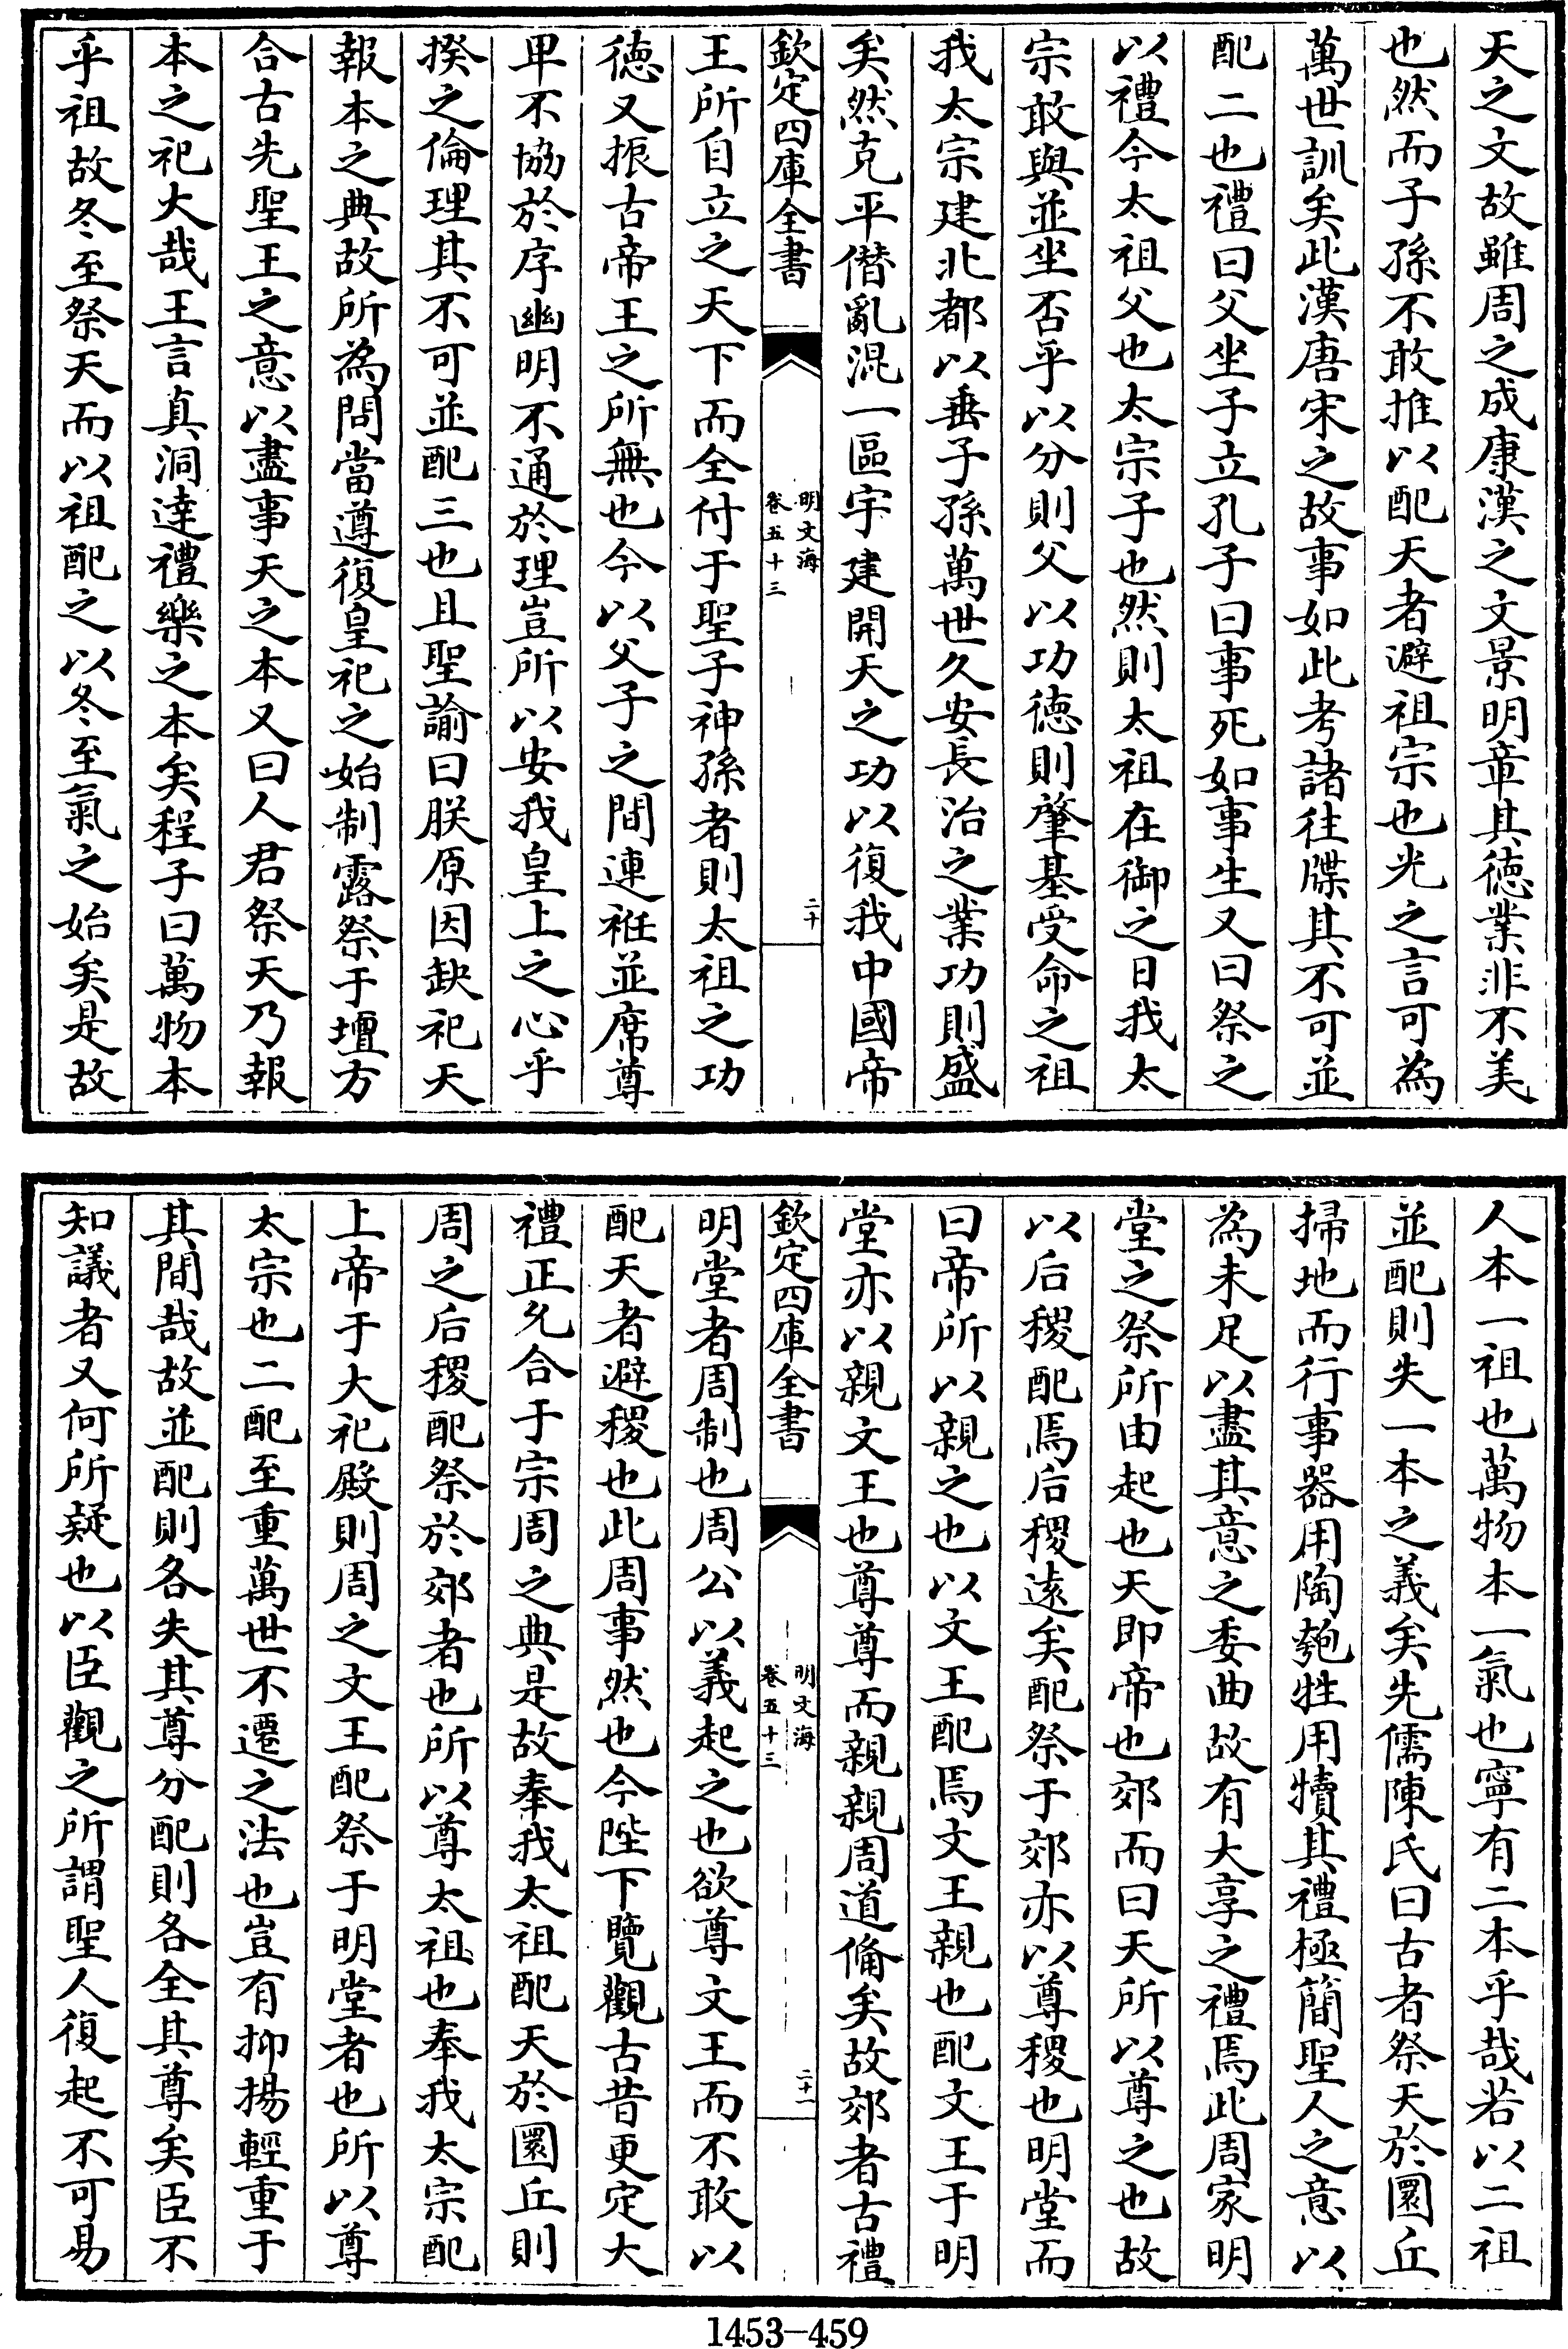 天之文故雖周之成康漢之文景明章其徳業非不美
也然而子孫不敢推以配天者避祖宗也光之言可為
萬世訓矣此漢唐宋之故事如此考諸往牒其不可並
配二也禮曰父坐子立孔子曰事死如事生又曰祭之
以禮今太祖父也太宗子也然則太祖在御之日我太
宗敢與並坐否乎以分則父以功徳則肇基受命之祖
我太宗建北都以垂子孫萬世久安長治之業功則盛
矣然克平僭亂混一區宇建開天之功以復我中國帝
欽定四庫全書
明文海
卷五十三
二十
王所自立之天下而全付于聖子神孫者則太祖之功
徳又振古帝王之所無也今以父子之間連袵並席尊
卑不協於序幽明不通於理豈所以安我皇上之心乎
揆之倫理其不可並配三也且聖諭曰朕原因缺祀天
報本之典故所為問當遵復皇祀之始制露祭于壇方
合古先聖王之意以盡事天之本又曰人君祭天乃報
本之祀大哉王言真洞達禮樂之本矣程子曰萬物本
乎祖故冬至祭天而以祖配之以冬至氣之始矣是故
人本一祖也萬物本一氣也寧有二本乎哉若以二祖
並配則失一本之義矣先儒陳氏曰古者祭天於圜丘
掃地而行事器用陶匏牲用犢其禮極簡聖人之意以
為未足以盡其意之委曲故有大享之禮焉此周家明
堂之祭所由起也天即帝也郊而曰天所以尊之也故
以后稷配焉后稷逺矣配祭于郊亦以尊稷也明堂而
曰帝所以親之也以文王配焉文王親也配文王于明
堂亦以親文王也尊尊而親親周道備矣故郊者古禮
欽定四庫全書
明文海
卷五十三
二十一
明堂者周制也周公以義起之也欲尊文王而不敢以
配天者避稷也此周事然也今陛下覽觀古昔更定大
禮正允合于宗周之典是故奉我太祖配天於圜丘則
周之后稷配祭於郊者也所以尊太祖也奉我太宗配
上帝于大祀殿則周之文王配祭于明堂者也所以尊
太宗也二配至重萬世不遷之法也豈有抑揚輕重于
其間哉故並配則各失其尊分配則各全其尊矣臣不
知議者又何所疑也以臣觀之所謂聖人復起不可易
1453-459